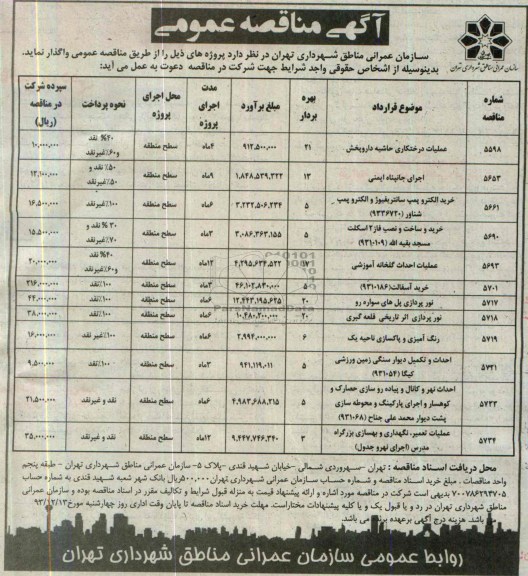 آگهی مناقصه عمومی
سازمان عمرانی مناطق شهرداری تهران
سازمان عمرانی مناطق شهرداری تهران در نظر دارد پروژه های ذیل را از طریق مناقصه عمومی واگذار نماید.
بدینوسیله از اشخاص حقوقی واجد شرایط جهت شرکت در مناقصه دعوت به عمل می آید:
شماره مناقصه | موضوع قرارداد | بهره بردار | مبلغ برآورد | مدت اجرای پروژه | محل اجرای پروژه | نحوه پرداخت | سپرده شرکت در مناقصه (ریال)
۵۵۹۸ | عملیات درختکاری حاشیه داروپخش | ۲۱ | ۹۱۲,۵۰۰,۰۰۰ | ۴ماه | سطح منطقه | ۴۰% نقد و۶۰٪غیرنقد | ۱۰,۰۰۰,۰۰۰
۵۶۵۳ | اجرای جانپناه ایمنی | ۱۳ | ۱,۸۴۸,۵۳۹,۳۲۲ | ۹ماه | سطح منطقه | ۵۰٪ نقد و ۵۰٪غیرنقد | ۱۲,۱۰۰,۰۰۰
۵۶۶۱ | خرید الکترو پمپ سانتریفیوژ و الکترو پمپ شناور (۹۳۳۶۷۲۰) | ۵ | ۳,۲۳۲,۵۰۶,۲۳۴ | ۶ماه | سطح منطقه | ۱۰۰٪غیرنقد | ۱۶,۵۰۰,۰۰۰
۵۶۹۰ | خرید و ساخت و نصب فاز۲ اسکلت مسجد بقیه الله (۹۳۱۰۱۰۹) | ۵ | ۳,۰۸۶,۳۶۳,۱۵۵ | ۳ماه | سطح منطقه | ۳۰ % نقد و ۷۰٪غیرنقد | ۱۵,۵۰۰,۰۰۰
۵۶۹۳ | عملیات احداث گلخانه آموزشی | ۱۷ | ۴,۲۹۵,۶۳۴,۵۲۲ | ۱۲ماه | سطح منطقه | ۴۰% نقد و۶۰٪غیرنقد | ۲۰,۰۰۰,۰۰۰
۵۷۰۱ | خرید آسفالت(۹۳۱۰۱۸۶) | ۵ | ۴۶,۱۰۲,۸۴۰,۰۰۰ | ۳ماه | سطح منطقه | ۱۰۰٪نقد | ۲۱۶,۰۰۰,۰۰۰
۵۷۱۷ | نور پردازی پل های سواره رو | ۲۰ | ۱۲,۴۴۳,۱۹۵,۶۲۵ | ۶ماه | سطح منطقه | ۱۰۰٪نقد | ۴۴,۰۰۰,۰۰۰
۵۷۱۸ | نور پردازی اثر تاریخی قلعه گبری | ۲۰ | ۱۰,۴۸۰,۲۰۰,۰۰۰ | ۶ماه | سطح منطقه | ۱۰۰٪نقد | ۳۸,۰۰۰,۰۰۰
۵۷۱۹ | رنگ آمیزی و پاکسازی ناحیه یک | ۶ | ۲,۹۹۴,۰۰۰,۰۰۰ | ۶ماه | سطح منطقه | ۱۰۰٪ غیر نقد | ۱۶,۰۰۰,۰۰۰
۵۷۲۱ | احداث و تکمیل دیوار سنگی زمین ورزشی کیگا (۹۳۱۰۵۴) | ۵ | ۹۴۱,۱۱۹,۰۱۱ | ۳ماه | سطح منطقه | ۱۰۰٪نقد | ۹,۵۰۰,۰۰۰
۵۷۳۳ | احداث نهر و کانال و پیاده رو سازی حصارک و کوهسار و اجرای پارکینگ و محوطه سازی پشت دیوار محمد علی جناح (۹۳۱۰۶۸) | ۵ | ۴,۹۸۳,۶۸۸,۲۱۵ | ۶ماه | سطح منطقه | نقد و غیرنقد | ۲۱,۵۰۰,۰۰۰
۵۷۳۴ | عملیات تعمیر، نگهداری و بهسازی بزرگراه مدرس (اجرای نهرو جدول) | ۳ | ۹,۴۴۷,۷۴۶,۳۴۰ | ۱۲ماه | سطح منطقه | نقد و غیرنقد | ۳۵,۰۰۰,۰۰۰
ParsNamadData
محل دریافت اسناد مناقصه : تهران -سهروردی شمالی -خیابان شهید قندی -پلاک ۵- سازمان عمرانی مناطق شهرداری تهران - طبقه پنجم
واحد مناقصات . مبلغ خرید اسناد مناقصه و شماره حساب سازمان عمرانی شهرداری تهران ۵۰۰,۰۰۰ریال بانک شهر شعبه شهید قندی به شماره حساب
۷۰۰۷۸۶۲۹۳۷۰۵ بدیهی است شرکت در مناقصه مورد اشاره و ارائه پیشنهاد قیمت به منزله قبول شرایط و تکالیف مقرر در اسناد مناقصه بوده و سازمان عمرانی
مناطق شهرداری تهران در رد و یا قبول یک و یا کلیه پیشنهادات مختاراست. مهلت خرید اسناد مناقصه تا پایان وقت اداری روز چهارشنبه مورخ۹۳/۱۲/۱۳
می باشد. هزینه درج آگهی برعهده برنده می باشد.
روابط عمومی سازمان عمرانی مناطق شهرداری تهران